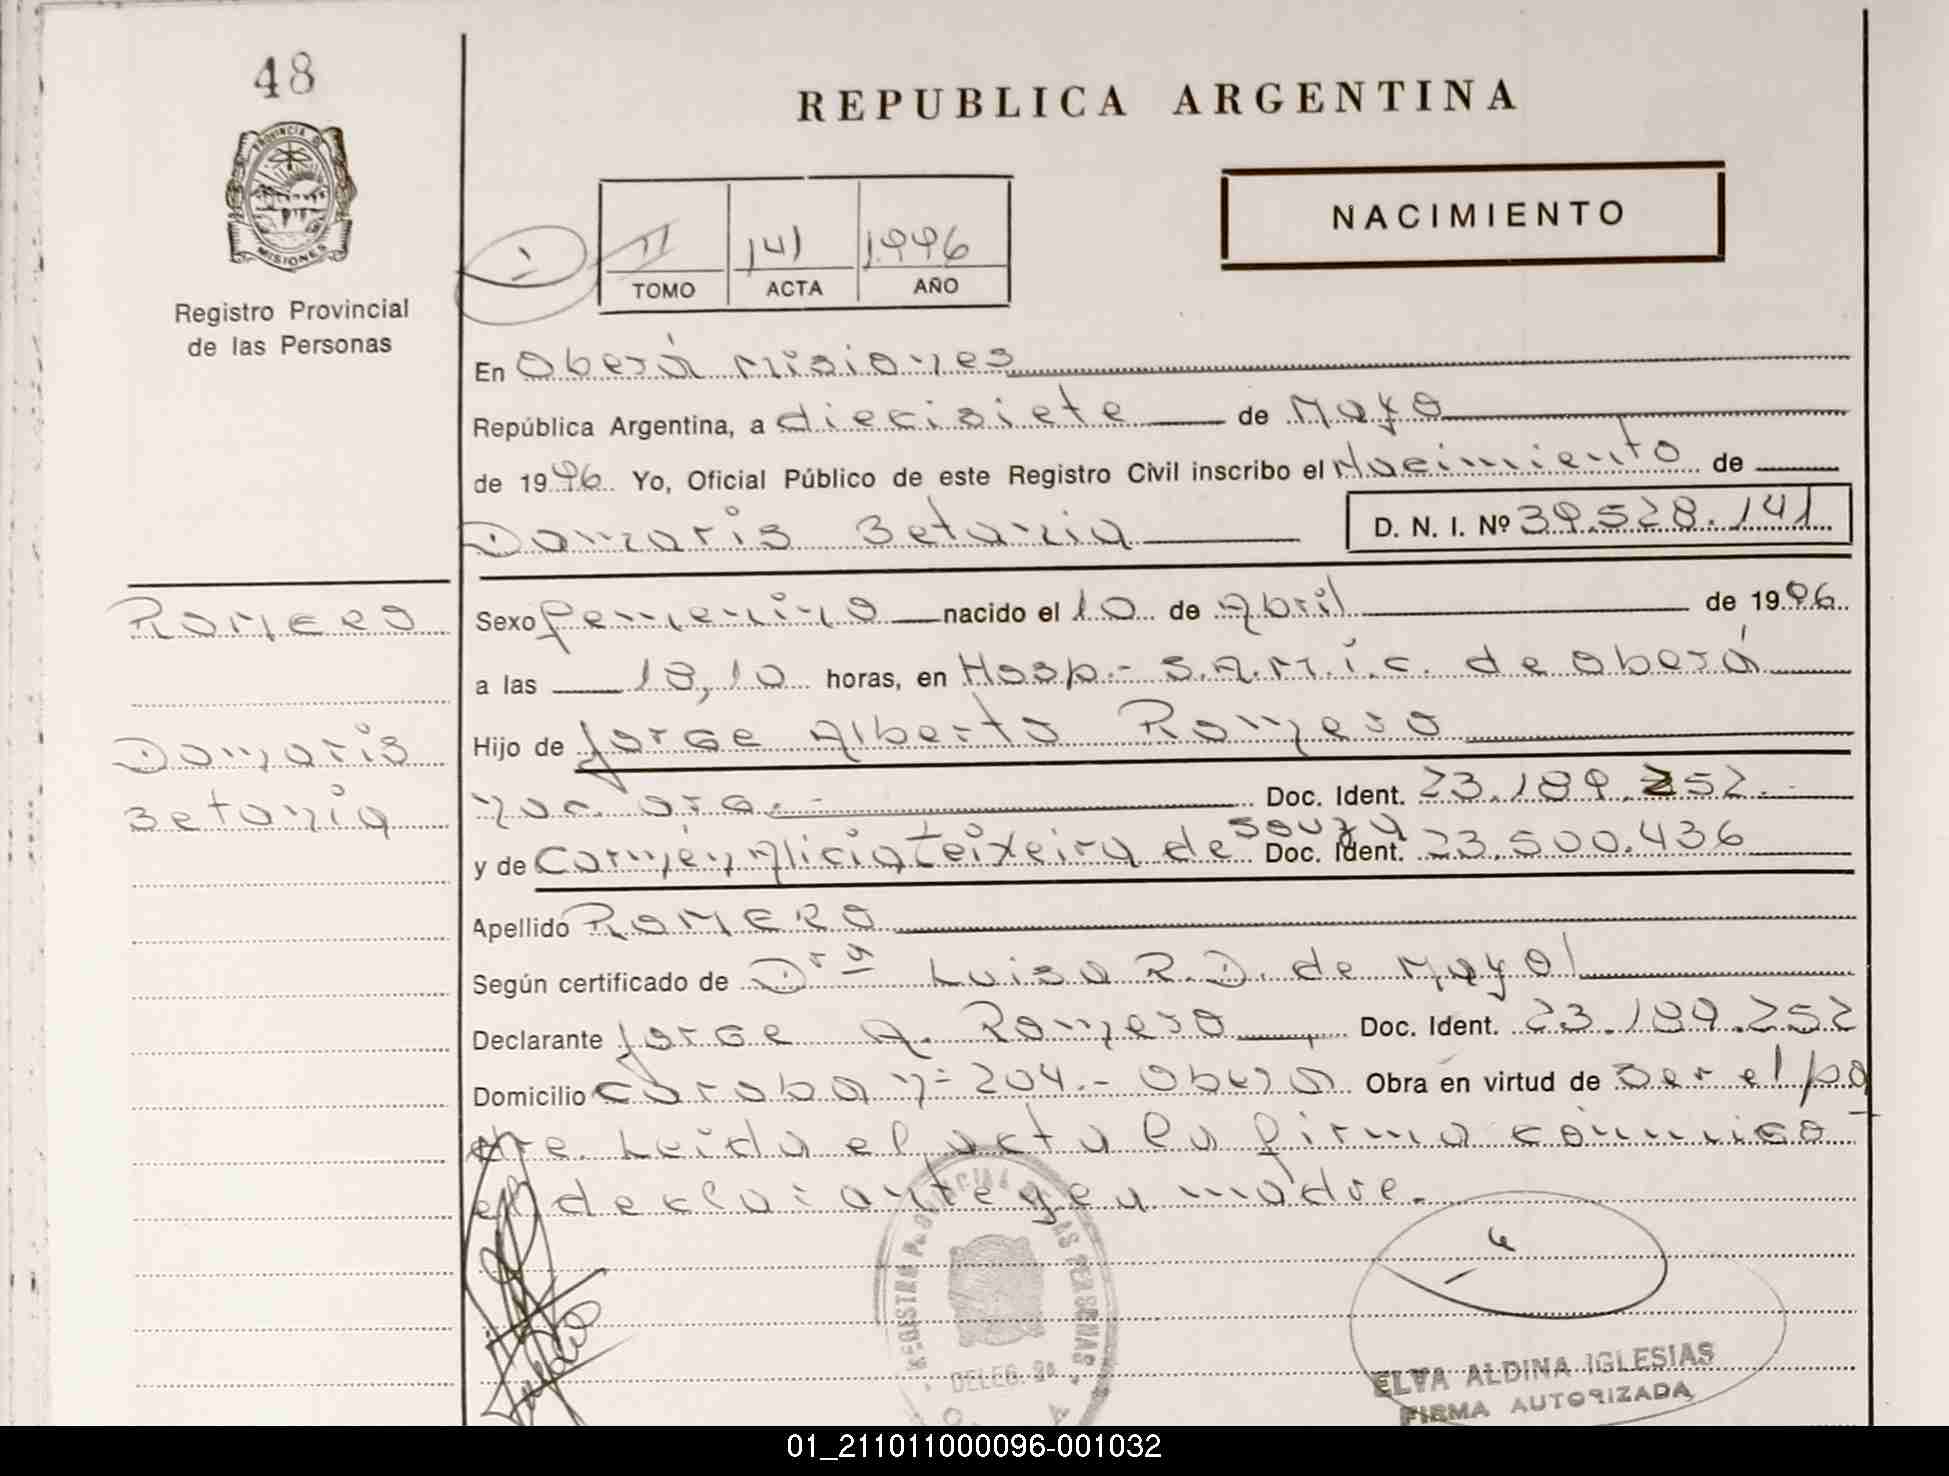 48
PROVINCIA D
MISIONES
Registro Provincial
de las Personas
REPUBLICA ARGENTINA
NACIMIENTO
II 141 1.996
TOMO ACTA AÑO
En Oberá Misiones
República Argentina, a diecisiete de Mayo
de 1996 Yo, Oficial Público de este Registro Civil inscribo el Nacimiento de
Damaris Betania D. N. I. Nº 39.528.141
Romero
Damaris
Betania
Sexo femenino nacido el 10 de Abril de 1996
a las 18,10 horas, en Hosp.- S.A.M.I.C. de Oberá
Hijo de Jorge Alberto Romero
nac. arg.- Doc. Ident. 23.189.252.-
y de Carmen Alicia Teixeira de Souza Doc. Ident. 23.500.436
Apellido ROMERO
Según certificado de Dra Luisa R.D. de Mayol
Declarante Jorge A. Romero Doc. Ident. 23.189.252
Domicilio Caroba nº 204.- Oberá Obra en virtud de ser el pa
dre. Leida el acta la firma conmigo
el declarante y la madre.
REGISTRO PROVINCIAL DE LAS PERSONAS
DELEG. 2a
ELVA ALDINA IGLESIAS
FIRMA AUTORIZADA
01_211011000096-001032